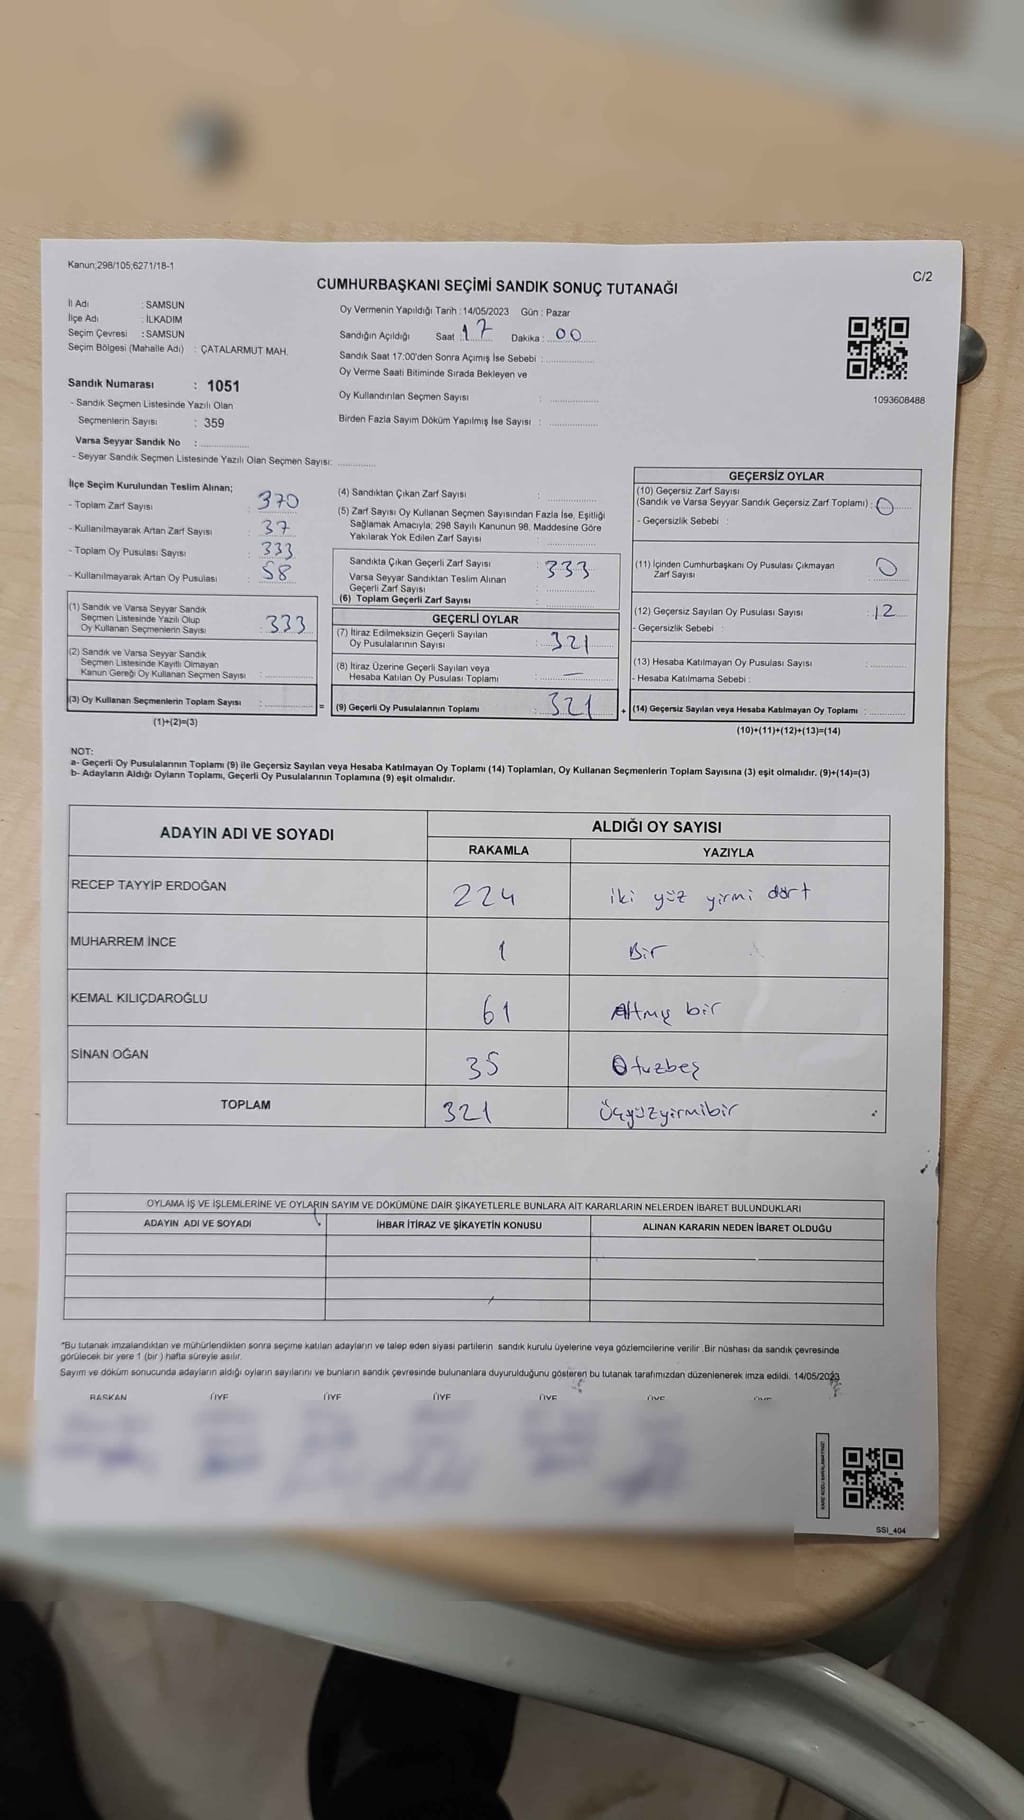 Kanun;298/105;6271/18-1
C/2
CUMHURBAŞKANI SEÇİMİ SANDIK SONUÇ TUTANAĞI
İl Adı : SAMSUN
İlçe Adı : İLKADIM
Seçim Çevresi : SAMSUN
Seçim Bölgesi (Mahalle Adı) : ÇATALARMUT MAH.
Oy Vermenin Yapıldığı Tarih : 14/05/2023 Gün : Pazar
Sandığın Açıldığı Saat : 17 Dakika : 00
Sandık Saat 17:00'den Sonra Açımış İse Sebebi :
Oy Verme Saati Bitiminde Sırada Bekleyen ve
Oy Kullandırılan Seçmen Sayısı :
Birden Fazla Sayım Döküm Yapılmış İse Sayısı :
1093608488
Sandık Numarası : 1051
- Sandık Seçmen Listesinde Yazılı Olan
Seçmenlerin Sayısı : 359
Varsa Seyyar Sandık No :
- Seyyar Sandık Seçmen Listesinde Yazılı Olan Seçmen Sayısı:
İlçe Seçim Kurulundan Teslim Alınan;
- Toplam Zarf Sayısı : 370
- Kullanılmayarak Artan Zarf Sayısı : 37
- Toplam Oy Pusulası Sayısı : 333
- Kullanılmayarak Artan Oy Pusulası : 58
(1) Sandık ve Varsa Seyyar Sandık
Seçmen Listesinde Yazılı Olup
Oy Kullanan Seçmenlerin Sayısı : 333
(2) Sandık ve Varsa Seyyar Sandık
Seçmen Listesinde Kayıtlı Olmayan
Kanun Gereği Oy Kullanan Seçmen Sayısı :
(3) Oy Kullanan Seçmenlerin Toplam Sayısı : =
(1)+(2)=(3)
(4) Sandıktan Çıkan Zarf Sayısı :
(5) Zarf Sayısı Oy Kullanan Seçmen Sayısından Fazla İse, Eşitliği
Sağlamak Amacıyla; 298 Sayılı Kanunun 98. Maddesine Göre
Yakılarak Yok Edilen Zarf Sayısı :
Sandıkta Çıkan Geçerli Zarf Sayısı : 333
Varsa Seyyar Sandıktan Teslim Alınan
Geçerli Zarf Sayısı :
(6) Toplam Geçerli Zarf Sayısı :
GEÇERLİ OYLAR
(7) İtiraz Edilmeksizin Geçerli Sayılan
Oy Pusulalarının Sayısı : 321
(8) İtiraz Üzerine Geçerli Sayılan veya
Hesaba Katılan Oy Pusulası Toplamı : —
(9) Geçerli Oy Pusulalarının Toplamı : 321 +
GEÇERSİZ OYLAR
(10) Geçersiz Zarf Sayısı
(Sandık ve Varsa Seyyar Sandık Geçersiz Zarf Toplamı) : 0
- Geçersizlik Sebebi :
(11) İçinden Cumhurbaşkanı Oy Pusulası Çıkmayan
Zarf Sayısı : 0
(12) Geçersiz Sayılan Oy Pusulası Sayısı : 12
- Geçersizlik Sebebi :
(13) Hesaba Katılmayan Oy Pusulası Sayısı :
- Hesaba Katılmama Sebebi :
(14) Geçersiz Sayılan veya Hesaba Katılmayan Oy Toplamı :
(10)+(11)+(12)+(13)=(14)
NOT:
a- Geçerli Oy Pusulalarının Toplamı (9) ile Geçersiz Sayılan veya Hesaba Katılmayan Oy Toplamı (14) Toplamları, Oy Kullanan Seçmenlerin Toplam Sayısına (3) eşit olmalıdır. (9)+(14)=(3)
b- Adayların Aldığı Oyların Toplamı, Geçerli Oy Pusulalarının Toplamına (9) eşit olmalıdır.
ADAYIN ADI VE SOYADI ALDIĞI OY SAYISI
RAKAMLA YAZIYLA
RECEP TAYYİP ERDOĞAN 224 iki yüz yirmi dört
MUHARREM İNCE 1 Bir
KEMAL KILIÇDAROĞLU 61 Altmış bir
SİNAN OĞAN 35 Otuzbeş
TOPLAM 321 Üçyüzyirmibir
OYLAMA İŞ VE İŞLEMLERİNE VE OYLARIN SAYIM VE DÖKÜMÜNE DAİR ŞİKAYETLERLE BUNLARA AİT KARARLARIN NELERDEN İBARET BULUNDUKLARI
ADAYIN ADI VE SOYADI İHBAR İTİRAZ VE ŞİKAYETİN KONUSU ALINAN KARARIN NEDEN İBARET OLDUĞU
*Bu tutanak imzalandıktan ve mühürlendikten sonra seçime katılan adayların ve talep eden siyasi partilerin sandık kurulu üyelerine veya gözlemcilerine verilir .Bir nüshası da sandık çevresinde
görülecek bir yere 1 (bir ) hafta süreyle asılır.
Sayım ve döküm sonucunda adayların aldığı oyların sayılarını ve bunların sandık çevresinde bulunanlara duyurulduğunu gösteren bu tutanak tarafımızdan düzenlenerek imza edildi. 14/05/2023
BAŞKAN ÜYE ÜYE ÜYE ÜYE ÜYE
SSI_404